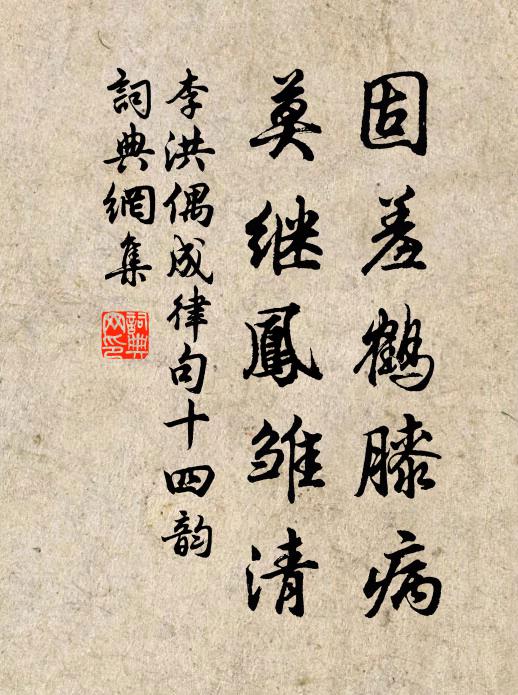 固羞鶴膝病
莫继鳳雏清
李洪偶成律句十四韵
詞典網集
詞典網印